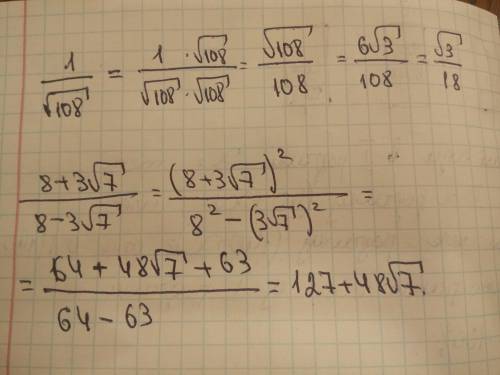 1/√108 = 1·√108/√108·√108 = √108/108 = 6√3/108 = √3/18
8+3√7/8-3√7 = (8+3√7)²/8²-(3√7)² =
= 64+48√7+63/64-63 = 127+48√7.